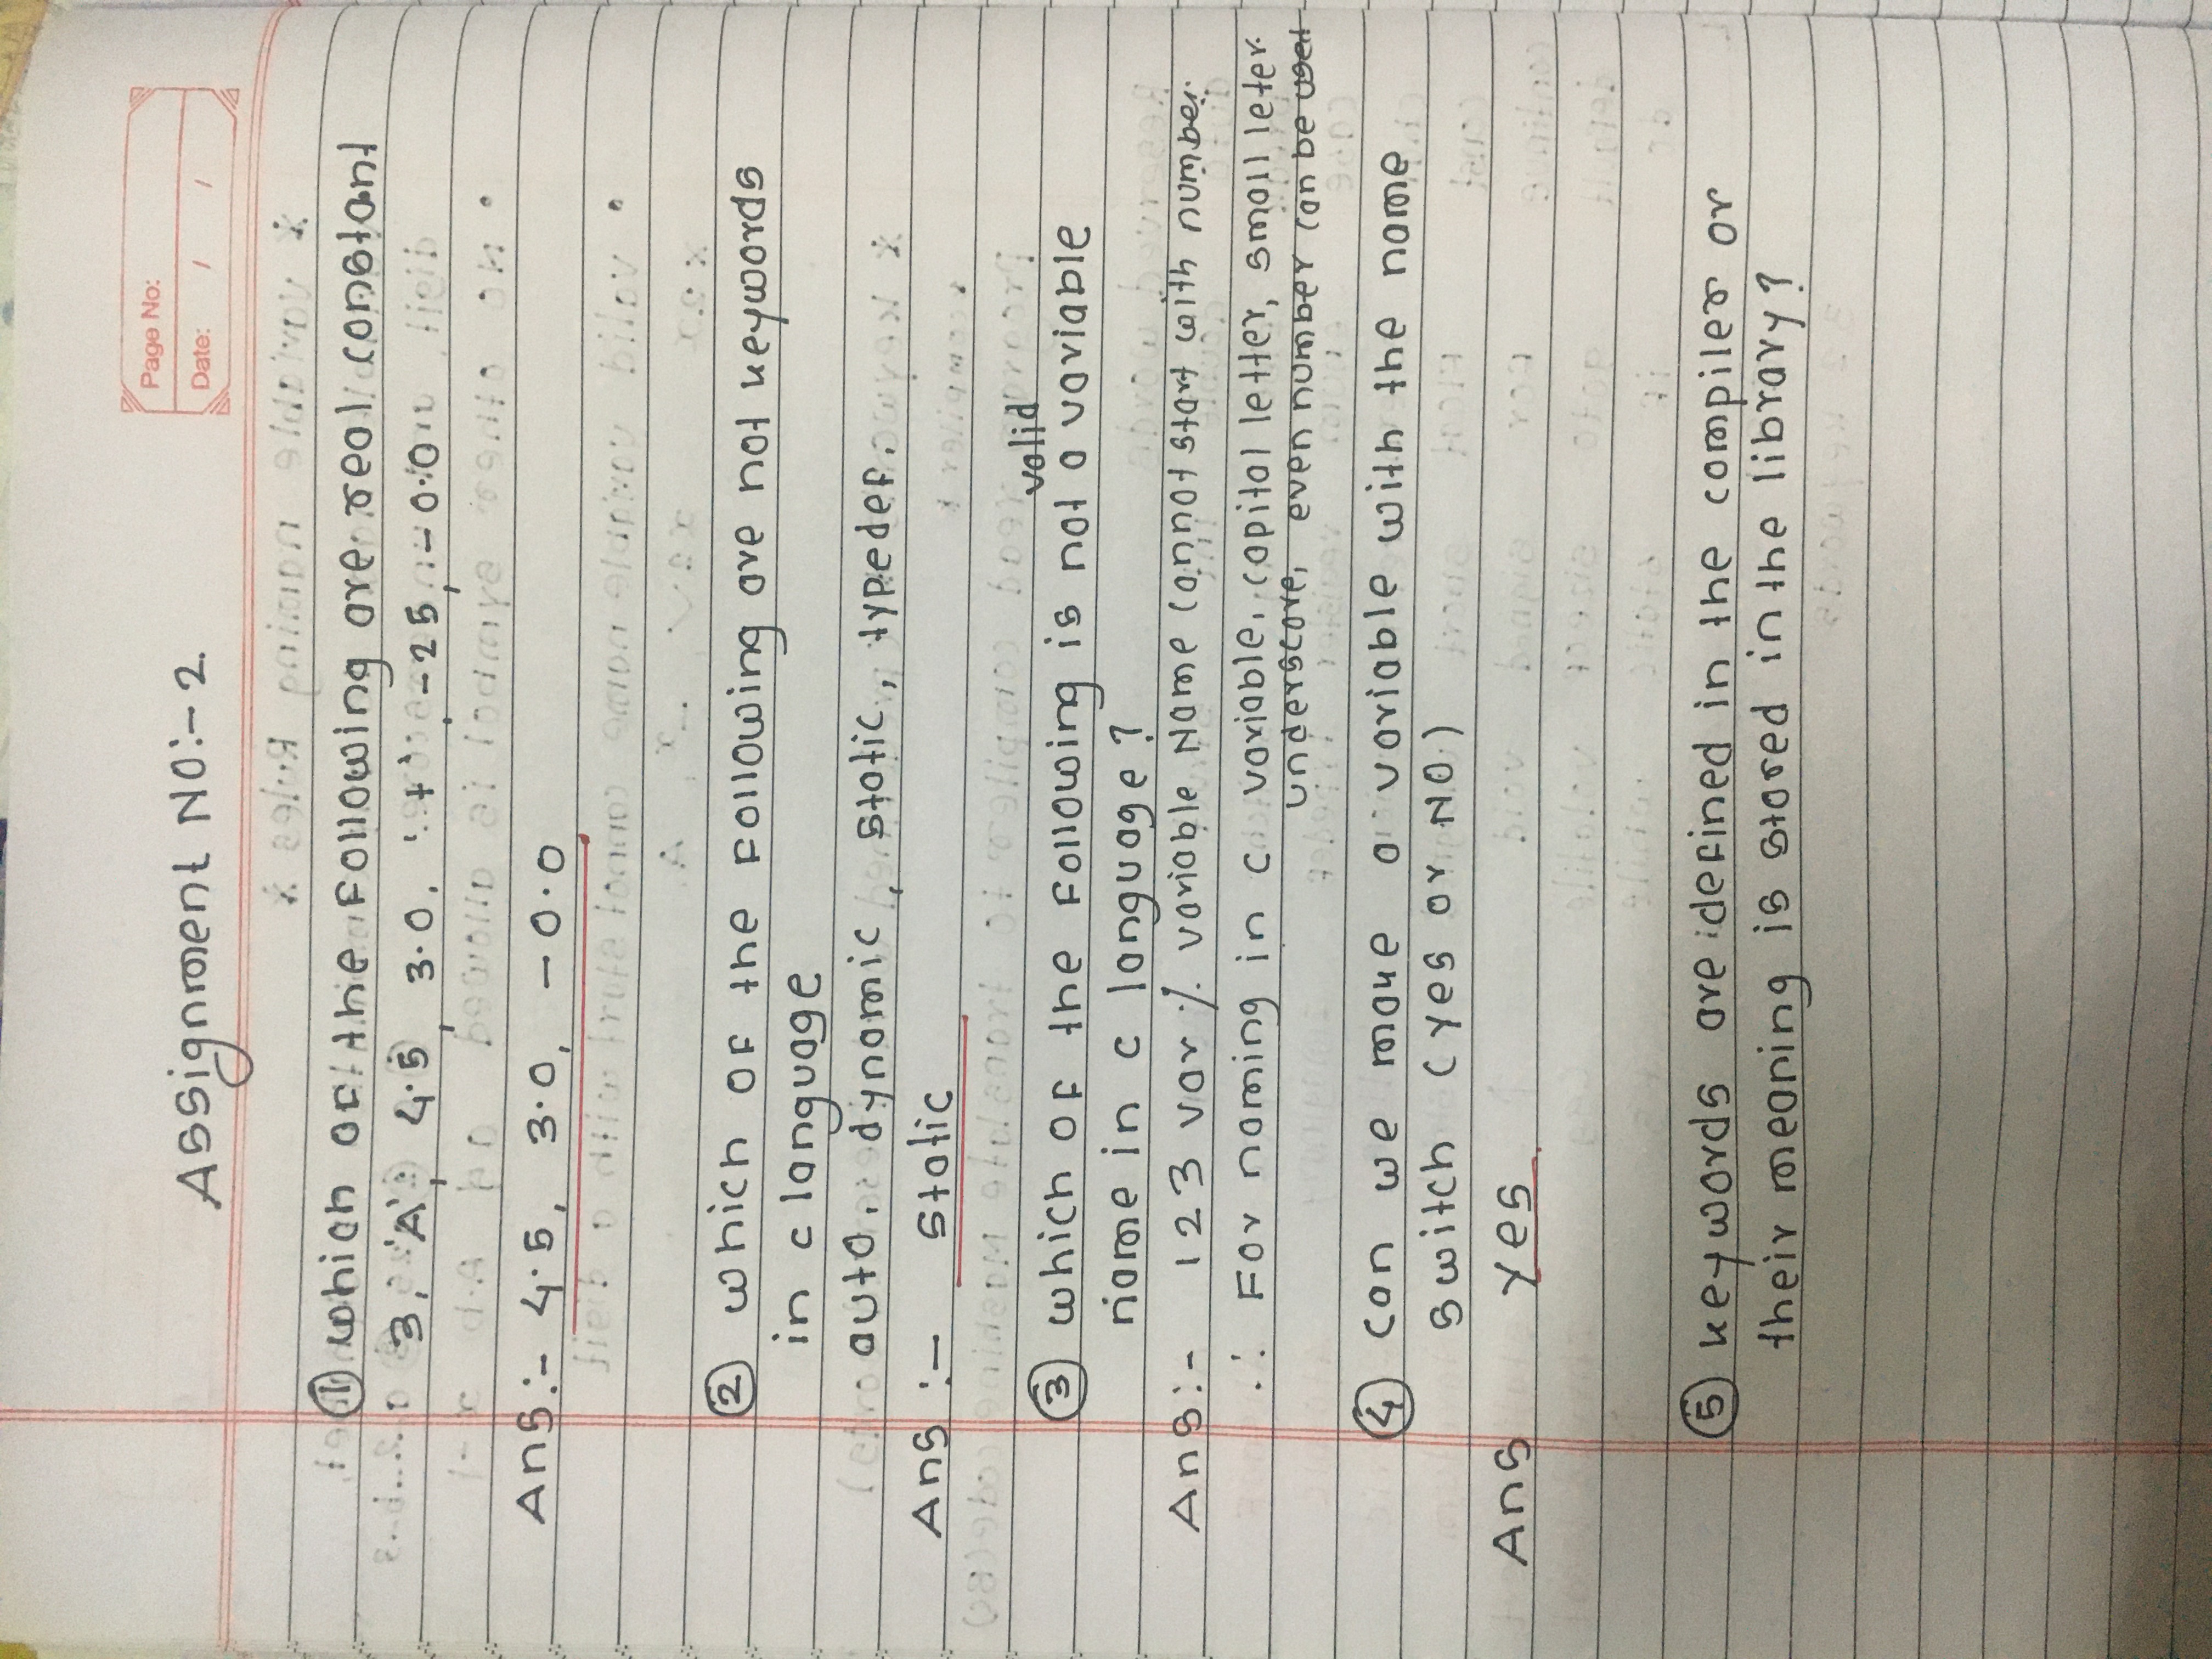 Page No:
Assignment NO:- 2.
Date: / /
① which of the following are real constant
3, 'A', 4.5, 3.0, '+', -25, -0.0
Ans:- 4.5, 3.0, -0.0
② which of the following are not keywords
in c language
auto, dynamic, static, typedef.
Ans :- static
valid
③ which of the following is not a variable
name in c language?
Ans:- 123 var ./. variable Name cannot start with number.
∴ For naming in c variable, capital letter, small leter.
underscore, even number can be used
④ can we make a variable with the name
switch (yes or NO.)
Ans yes
⑤ keywords are defined in the compiler or
their meaning is stored in the library?